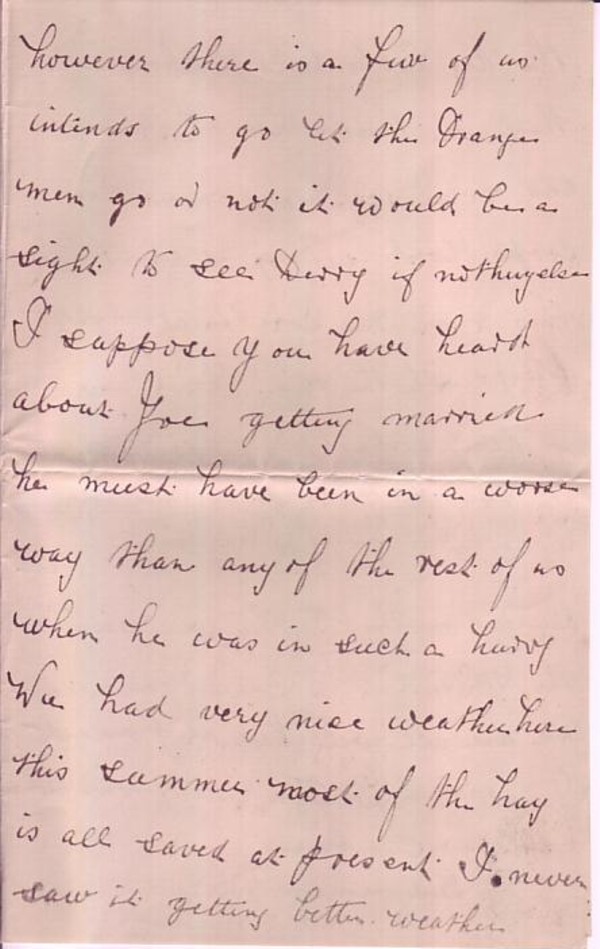 however there is a few of us
intends to go let the Orange
men go or not it would be a
sight to see Derry if nothingelse
I suppose you have heard
about Joe getting married
he must have been in a worse
way than any of the rest of us
when he was in such a hurry
We had very nice weather here
this summer most of the hay
is all saved at present I never
saw it getting better weather